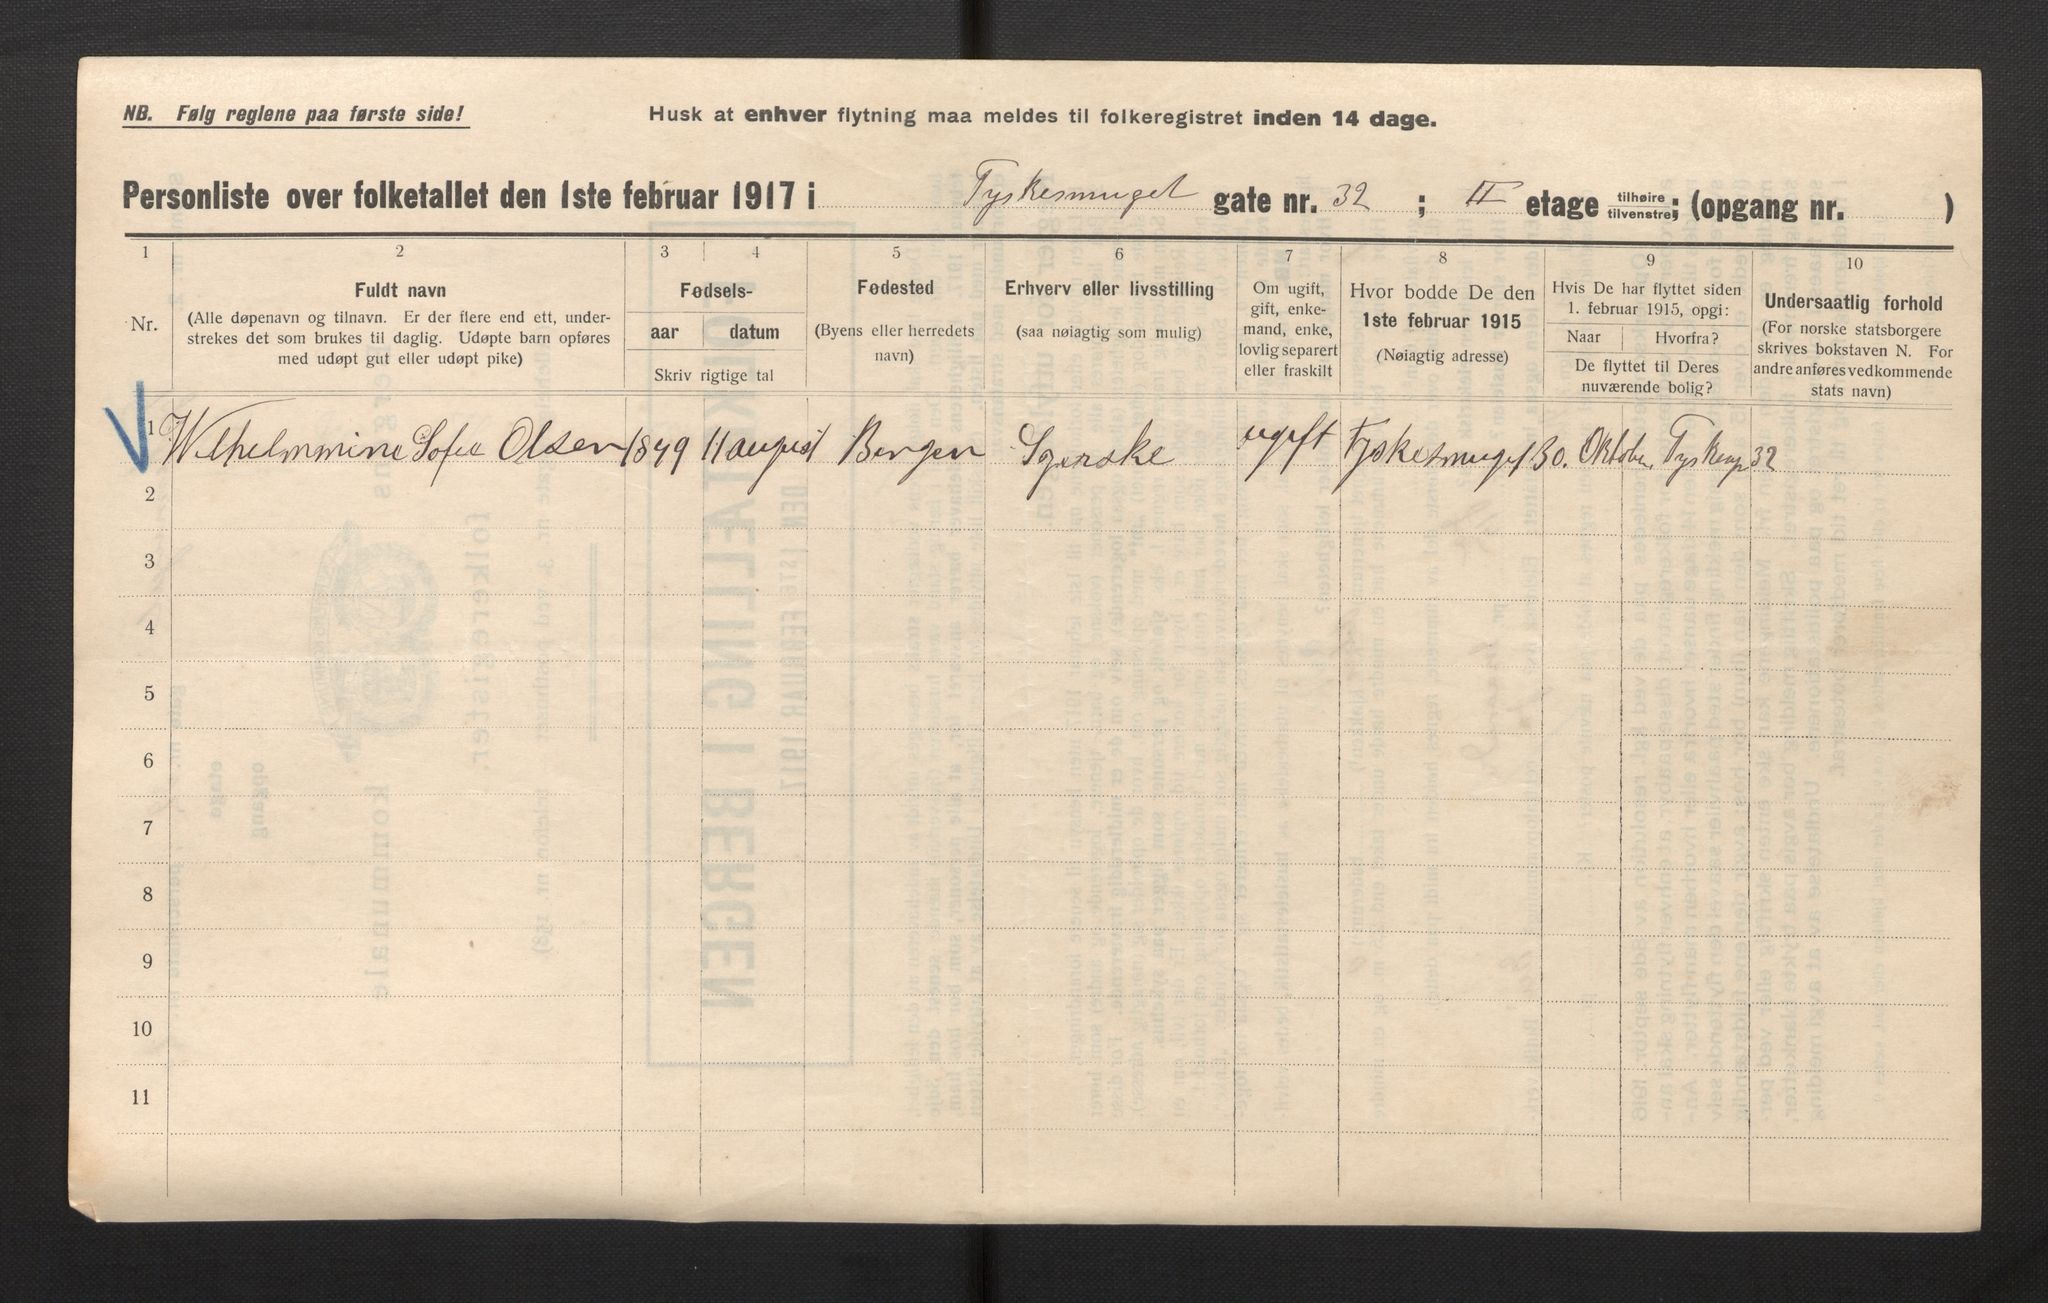 NB. Følg reglene paa første side!
Husk at enhver flytning maa meldes til folkeregistret inden 14 dage.
Personliste over folketallet den 1ste februar 1917 i Tyskesmuget gate nr. 32 ; II etage tilhøire tilvenstre; (opgang nr. )
1 2 3 4 5 6 7 8 9 10
Nr.
Fuldt navn
(Alle døpenavn og tilnavn. Er der flere end ett, under-
strekes det som brukes til daglig. Udøpte barn opføres
med udøpt gut eller udøpt pike)
Fødsels-
aar datum
Skriv rigtige tal
Fødested
(Byens eller herredets
navn)
Erhverv eller livsstilling
(saa nøiagtig som mulig)
Om ugift,
gift, enke-
mand, enke,
lovlig separert
eller fraskilt
Hvor bodde De den
1ste februar 1915
(Nøiagtig adresse)
Hvis De har flyttet siden
1. februar 1915, opgi:
Naar Hvorfra?
De flyttet til Deres
nuværende bolig?
Undersaatlig forhold
(For norske statsborgere
skrives bokstaven N. For
andre anføres vedkommende
stats navn)
1 Wilhelmmine Sofie Olsen 1849 11 august Bergen Syerske ugift Tyskesmuget 30. Oktober, 32
2
3
4
5
6
7
8
9
10
11